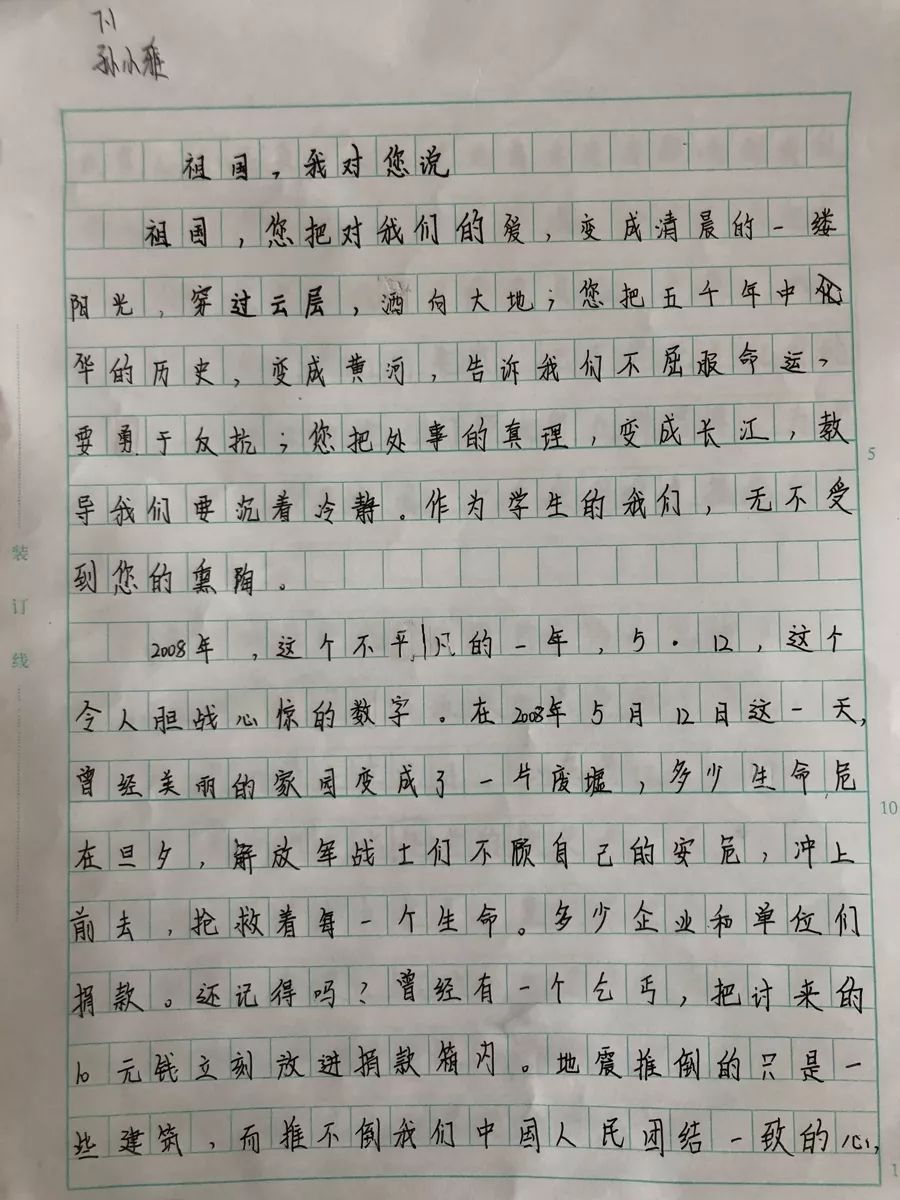 7.1
孙小雅
祖国，我对您说
祖国，您把对我们的爱，变成清晨的一缕
阳光，穿过云层，洒向大地；您把五千年中
华的历史，变成黄河，告诉我们不屈服命运，
要勇于反抗；您把处事的真理，变成长江，教
导我们要沉着冷静。作为学生的我们，无不受
到您的熏陶。
2008年，这个不平凡的一年，5·12，这个
令人胆战心惊的数字。在2008年5月12日这一天，
曾经美丽的家园变成了一片废墟，多少生命危
在旦夕，解放军战士们不顾自己的安危，冲上
前去，抢救着每一个生命。多少企业和单位们
捐款。还记得吗？曾经有一个乞丐，把讨来的
10元钱立刻放进捐款箱内。地震推倒的只是一
些建筑，而推不倒我们中国人民团结一致的心，
5
10
1
装订线